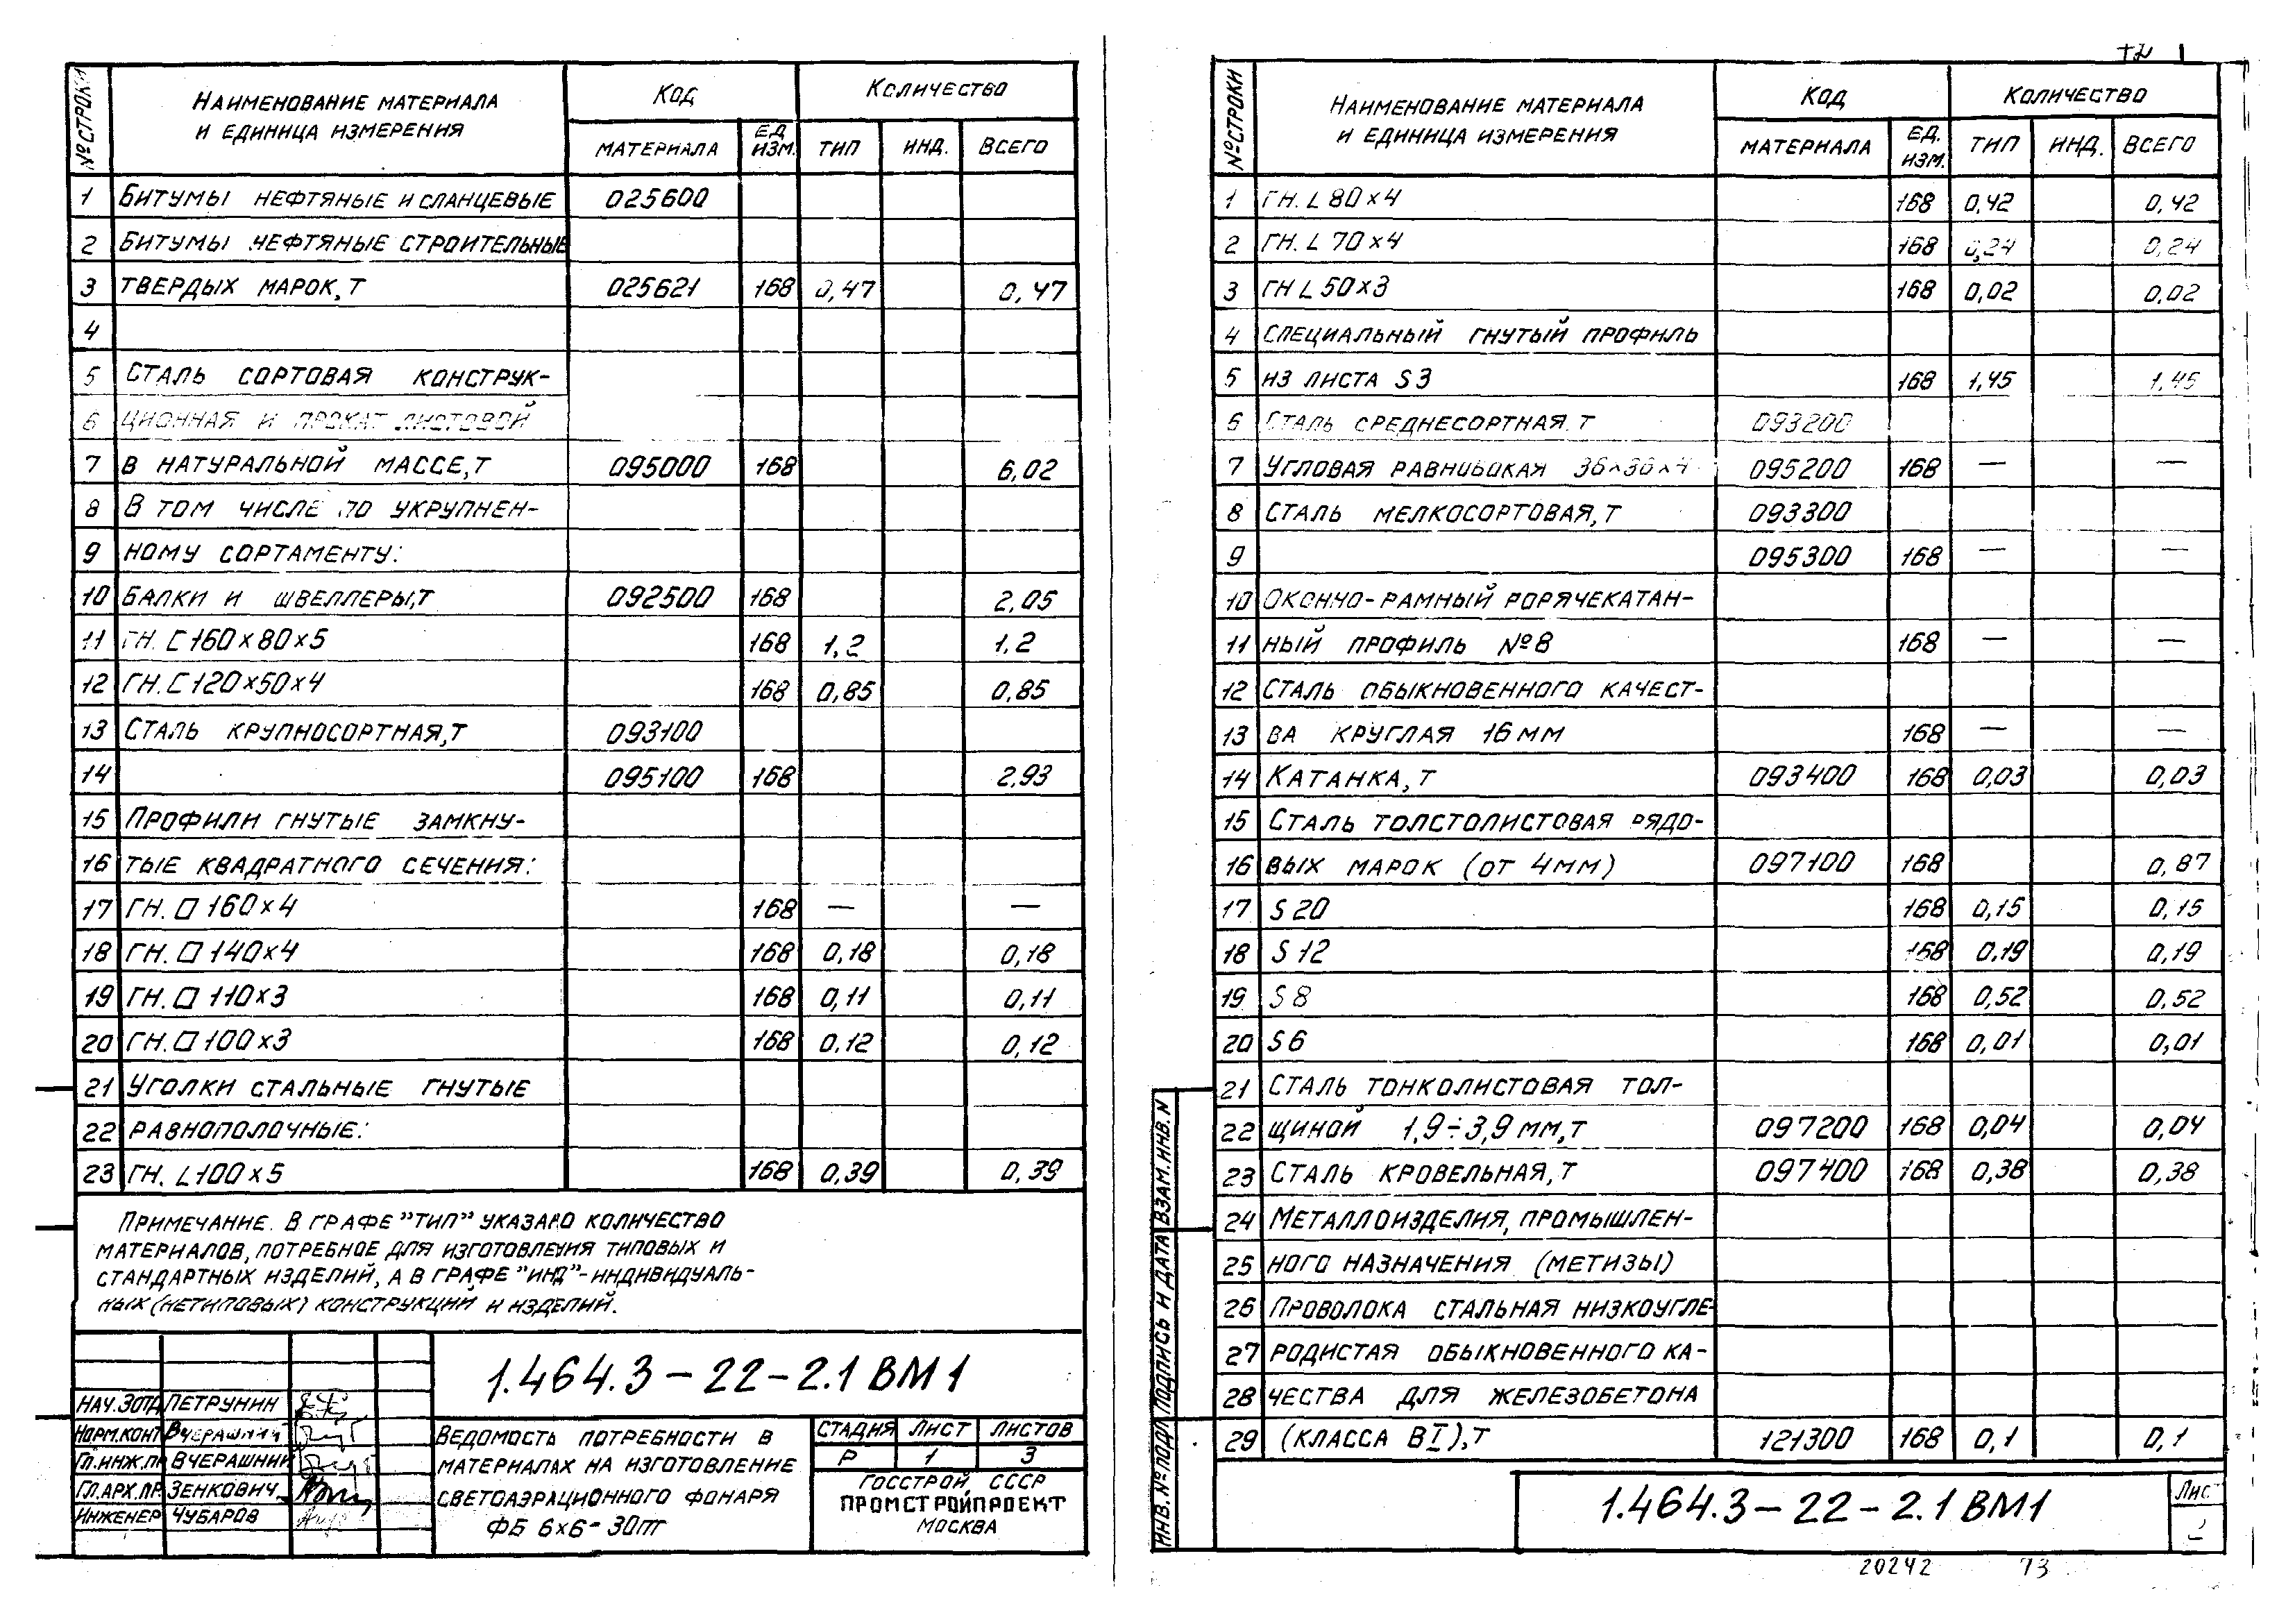 № СТРОКИ | НАИМЕНОВАНИЕ МАТЕРИАЛА И ЕДИНИЦА ИЗМЕРЕНИЯ | КОД | КОЛИЧЕСТВО
МАТЕРИАЛА | ЕД. ИЗМ. | ТИП | ИНД. | ВСЕГО
1 БИТУМЫ НЕФТЯНЫЕ И СЛАНЦЕВЫЕ 025600
2 БИТУМЫ НЕФТЯНЫЕ СТРОИТЕЛЬНЫЕ
3 ТВЕРДЫХ МАРОК, Т 025621 168 0,47 0,47
4
5 СТАЛЬ СОРТОВАЯ КОНСТРУК-
6 ЦИОННАЯ И ПРОКАТ ЛИСТОВОЙ
7 В НАТУРАЛЬНОЙ МАССЕ, Т 095000 168 6,02
8 В ТОМ ЧИСЛЕ ПО УКРУПНЕН-
9 НОМУ СОРТАМЕНТУ:
10 БАЛКИ И ШВЕЛЛЕРЫ, Т 092500 168 2,05
11 ГН. [ 160×80×5 168 1,2 1,2
12 ГН. [ 120×50×4 168 0,85 0,85
13 СТАЛЬ КРУПНОСОРТНАЯ, Т 093100
14 095100 168 2,93
15 ПРОФИЛИ ГНУТЫЕ ЗАМКНУ-
16 ТЫЕ КВАДРАТНОГО СЕЧЕНИЯ:
17 ГН. □ 160×4 168 — —
18 ГН. □ 140×4 168 0,18 0,18
19 ГН. □ 110×3 168 0,11 0,11
20 ГН. □ 100×3 168 0,12 0,12
21 УГОЛКИ СТАЛЬНЫЕ ГНУТЫЕ
22 РАВНОПОЛОЧНЫЕ:
23 ГН. L 100×5 168 0,39 0,39
ПРИМЕЧАНИЕ. В ГРАФЕ "ТИП" УКАЗАНО КОЛИЧЕСТВО
МАТЕРИАЛОВ, ПОТРЕБНОЕ ДЛЯ ИЗГОТОВЛЕНИЯ ТИПОВЫХ И
СТАНДАРТНЫХ ИЗДЕЛИЙ, А В ГРАФЕ "ИНД"-ИНДИВИДУАЛЬ-
НЫХ (НЕТИПОВЫХ) КОНСТРУКЦИЙ И ИЗДЕЛИЙ.
1.464.3-22-2.1 ВМ1
НАЧ. ЗОТД ПЕТРУНИН
НОРМ. КОНТ ВЧЕРАШНИЙ
ГЛ. ИНЖ. ПР ВЧЕРАШНИЙ
ГЛ. АРХ. ПР. ЗЕНКОВИЧ
ИНЖЕНЕР ЧУБАРОВ
ВЕДОМОСТЬ ПОТРЕБНОСТИ В
МАТЕРИАЛАХ НА ИЗГОТОВЛЕНИЕ
СВЕТОАЭРАЦИОННОГО ФОНАРЯ
ФБ 6×6-30пт
СТАДИЯ ЛИСТ ЛИСТОВ
Р 1 3
ГОССТРОЙ СССР
ПРОМСТРОЙПРОЕКТ
МОСКВА
№ СТРОКИ | НАИМЕНОВАНИЕ МАТЕРИАЛА И ЕДИНИЦА ИЗМЕРЕНИЯ | КОД | КОЛИЧЕСТВО
МАТЕРИАЛА | ЕД. ИЗМ. | ТИП | ИНД. | ВСЕГО
1 ГН. L 80×4 168 0,42 0,42
2 ГН. L 70×4 168 0,24 0,24
3 ГН L 50×3 168 0,02 0,02
4 СПЕЦИАЛЬНЫЙ ГНУТЫЙ ПРОФИЛЬ
5 ИЗ ЛИСТА S 3 168 1,45 1,45
6 СТАЛЬ СРЕДНЕСОРТНАЯ, Т 093200
7 УГЛОВАЯ РАВНОБОКАЯ 36×36×4 095200 168 — —
8 СТАЛЬ МЕЛКОСОРТОВАЯ, Т 093300
9 095300 168 — —
10 ОКОННО-РАМНЫЙ ГОРЯЧЕКАТАН-
11 НЫЙ ПРОФИЛЬ №8 168 — —
12 СТАЛЬ ОБЫКНОВЕННОГО КАЧЕСТ-
13 ВА КРУГЛАЯ 16 ММ 168 — —
14 КАТАНКА, Т 093400 168 0,03 0,03
15 СТАЛЬ ТОЛСТОЛИСТОВАЯ РЯДО-
16 ВЫХ МАРОК (ОТ 4ММ) 097100 168 0,87
17 S 20 168 0,15 0,15
18 S 12 168 0,19 0,19
19 S 8 168 0,52 0,52
20 S 6 168 0,01 0,01
21 СТАЛЬ ТОНКОЛИСТОВАЯ ТОЛ-
22 ЩИНОЙ 1,9÷3,9 ММ, Т 097200 168 0,04 0,04
23 СТАЛЬ КРОВЕЛЬНАЯ, Т 097400 168 0,38 0,38
24 МЕТАЛЛОИЗДЕЛИЯ, ПРОМЫШЛЕН-
25 НОГО НАЗНАЧЕНИЯ (МЕТИЗЫ)
26 ПРОВОЛОКА СТАЛЬНАЯ НИЗКОУГЛЕ-
27 РОДИСТАЯ ОБЫКНОВЕННОГО КА-
28 ЧЕСТВА ДЛЯ ЖЕЛЕЗОБЕТОНА
29 (КЛАССА ВI), Т 121300 168 0,1 0,1
ИНВ. № ПОДЛ ПОДПИСЬ И ДАТА ВЗАМ. ИНВ. N
1.464.3-22-2.1 ВМ1
Лис
20242 73